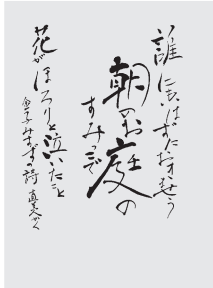 誰にもいはずにおきませう
朝のお庭の
すみつこで
花がほろりと泣いたこと
金子みすゞの詩 直美かく